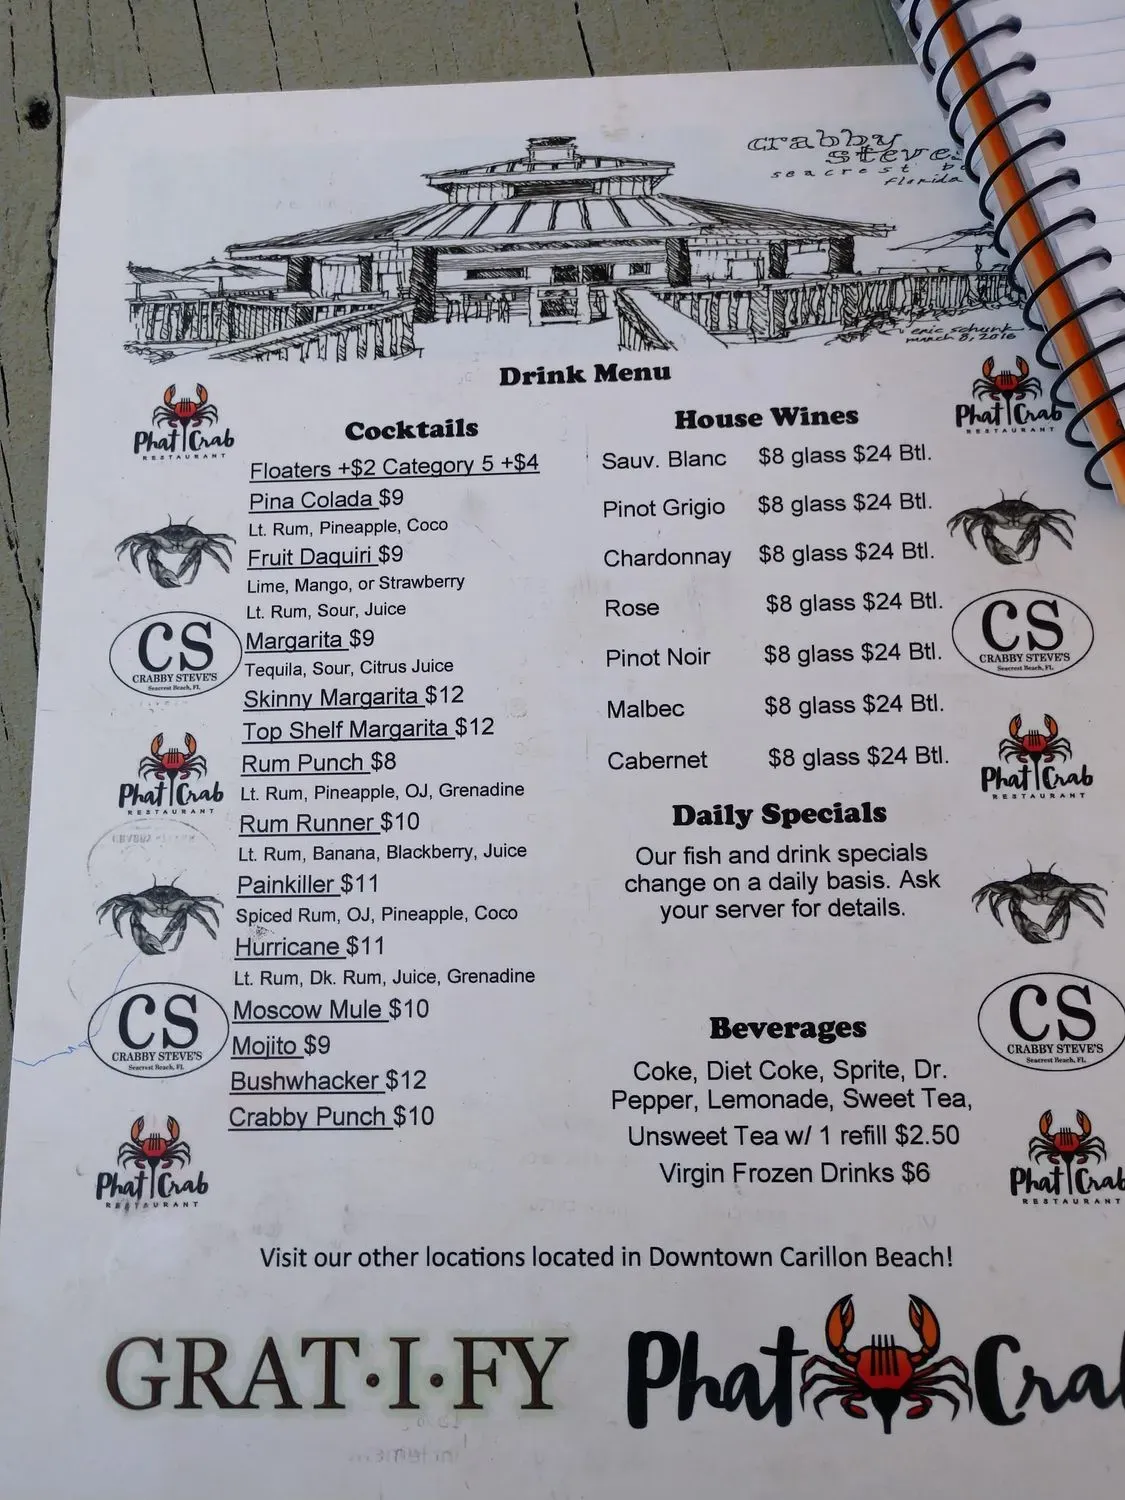 crabby
steve
seacrest
florida
eric schunk
march 8, 2016
Drink Menu
Phat Crab
RESTAURANT
Phat Crab
RESTAURANT
Cocktails
Floaters +$2 Category 5 +$4
Pina Colada $9
Lt. Rum, Pineapple, Coco
Fruit Daquiri $9
Lime, Mango, or Strawberry
Lt. Rum, Sour, Juice
Margarita $9
Tequila, Sour, Citrus Juice
Skinny Margarita $12
Top Shelf Margarita $12
Rum Punch $8
Lt. Rum, Pineapple, OJ, Grenadine
Rum Runner $10
Lt. Rum, Banana, Blackberry, Juice
Painkiller $11
Spiced Rum, OJ, Pineapple, Coco
Hurricane $11
Lt. Rum, Dk. Rum, Juice, Grenadine
Moscow Mule $10
Mojito $9
Bushwhacker $12
Crabby Punch $10
CS
CRABBY STEVE'S
Seacrest Beach, FL
Phat Crab
RESTAURANT
CS
CRABBY STEVE'S
Seacrest Beach, FL
Phat Crab
RESTAURANT
House Wines
Sauv. Blanc $8 glass $24 Btl.
Pinot Grigio $8 glass $24 Btl.
Chardonnay $8 glass $24 Btl.
Rose $8 glass $24 Btl.
Pinot Noir $8 glass $24 Btl.
Malbec $8 glass $24 Btl.
Cabernet $8 glass $24 Btl.
Daily Specials
Our fish and drink specials
change on a daily basis. Ask
your server for details.
Beverages
Coke, Diet Coke, Sprite, Dr.
Pepper, Lemonade, Sweet Tea,
Unsweet Tea w/ 1 refill $2.50
Virgin Frozen Drinks $6
CS
CRABBY STEVE'S
Seacrest Beach, FL
Phat Crab
RESTAURANT
CS
CRABBY STEVE'S
Seacrest Beach, FL
Phat Crab
RESTAURANT
Visit our other locations located in Downtown Carillon Beach!
GRAT·I·FY
Phat Cra